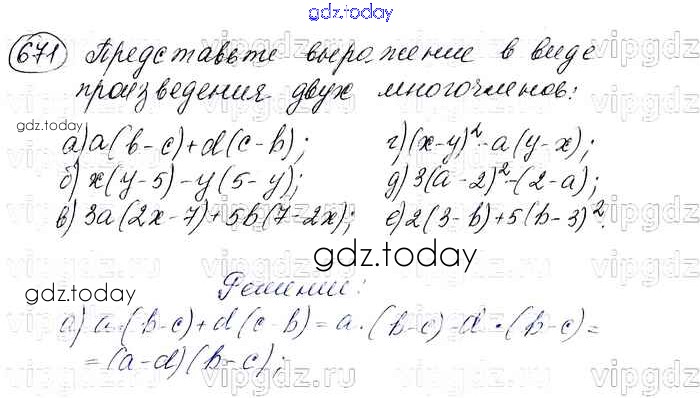 gdz.today
671 Представьте выражение в виде
произведения двух многочленов:
gdz.today
а) a(b-c)+d(c-b); г) (x-y)²-a(y-x);
б) x(y-5)-y(5-y); д) 3(a-2)²-(2-a);
в) 3a(2x-7)+5b(7-2x); е) 2(3-b)+5(b-3)².
gdz.today
gdz.today
Решение:
а) a·(b-c)+d(c-b)=a·(b-c)-d·(b-c)=
=(a-d)(b-c);
vipgdz.ru